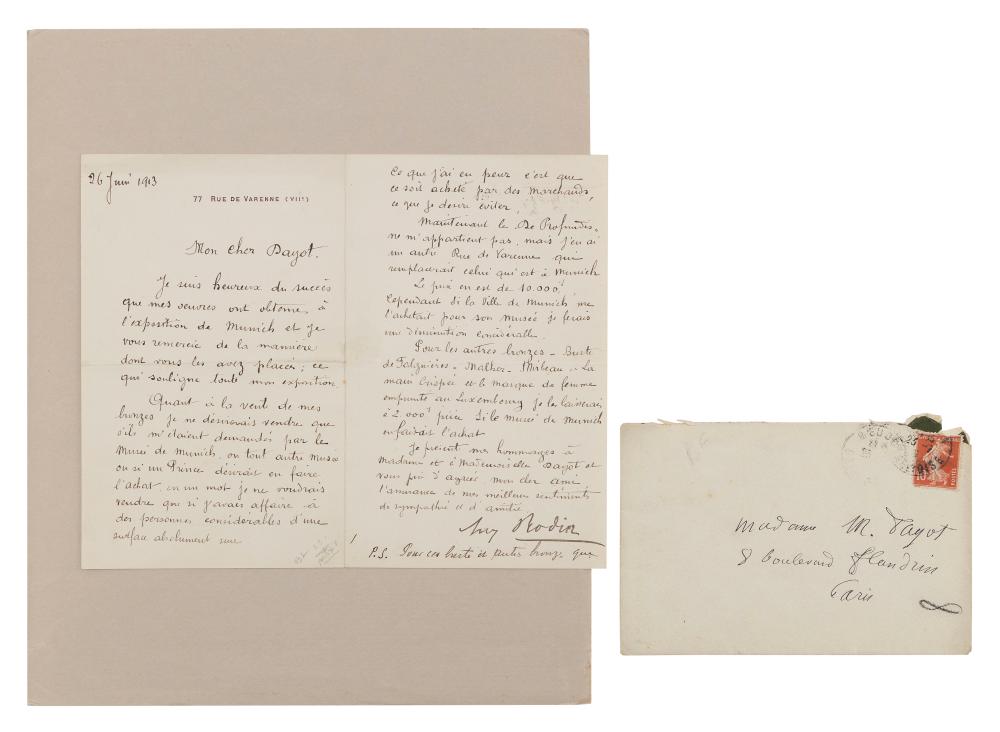 26 Juin 1913
77 RUE DE VARENNE (VIIe)
Mon cher Dayot.
Je suis heureux du succès
que mes oeuvres ont obtenu à
l'exposition de Munich et je
vous remercie de la mannière
dont vous les avez placées; ce
qui souligne toute mon exposition.
Quant à la vente de mes
bronzes je ne désirerais vendre que
s'ils m'étaient demandés par le
Musée de Munich, ou tout autre Musée
ou si un Prince désirait en faire
l'achat. en un mot je ne voudrais
vendre que si j'avais affaire à
des personnes considérables d'une
surface absolument sure
Ce que j'ai eu peur c'est que
ce soit acheté par des marchands,
ce que je desire éviter.
Maintenant le De Profundis.
ne m'appartient pas, mais j'en ai
un autre Rue de Varenne qui
remplacerait celui qui est à Munich
Le prix en est de 10.000f
Cependant si la Ville de Munich me
l'achetait pour son musée je ferais
une diminution considérable.
Pour les autres bronzes - Buste
de Falguières - Malher - Mirbeau - La
main Crispée et le masque de femme
emprunté au Luxembourg je les laisserai
à 2.000f pièce si le musée de Munich
en faisait l'achat
Je présente mes hommages à
Madame et à Mademoiselle Dayot et
vous prie d'agréer, mon cher ami
l'assurance de mes meilleurs sentiments
de sympathie et d'amitié
Aug Rodin
P.S. Pour ces buste et petits bronze que
Madame M. Dayot
8 boulevard Flandrin
Paris